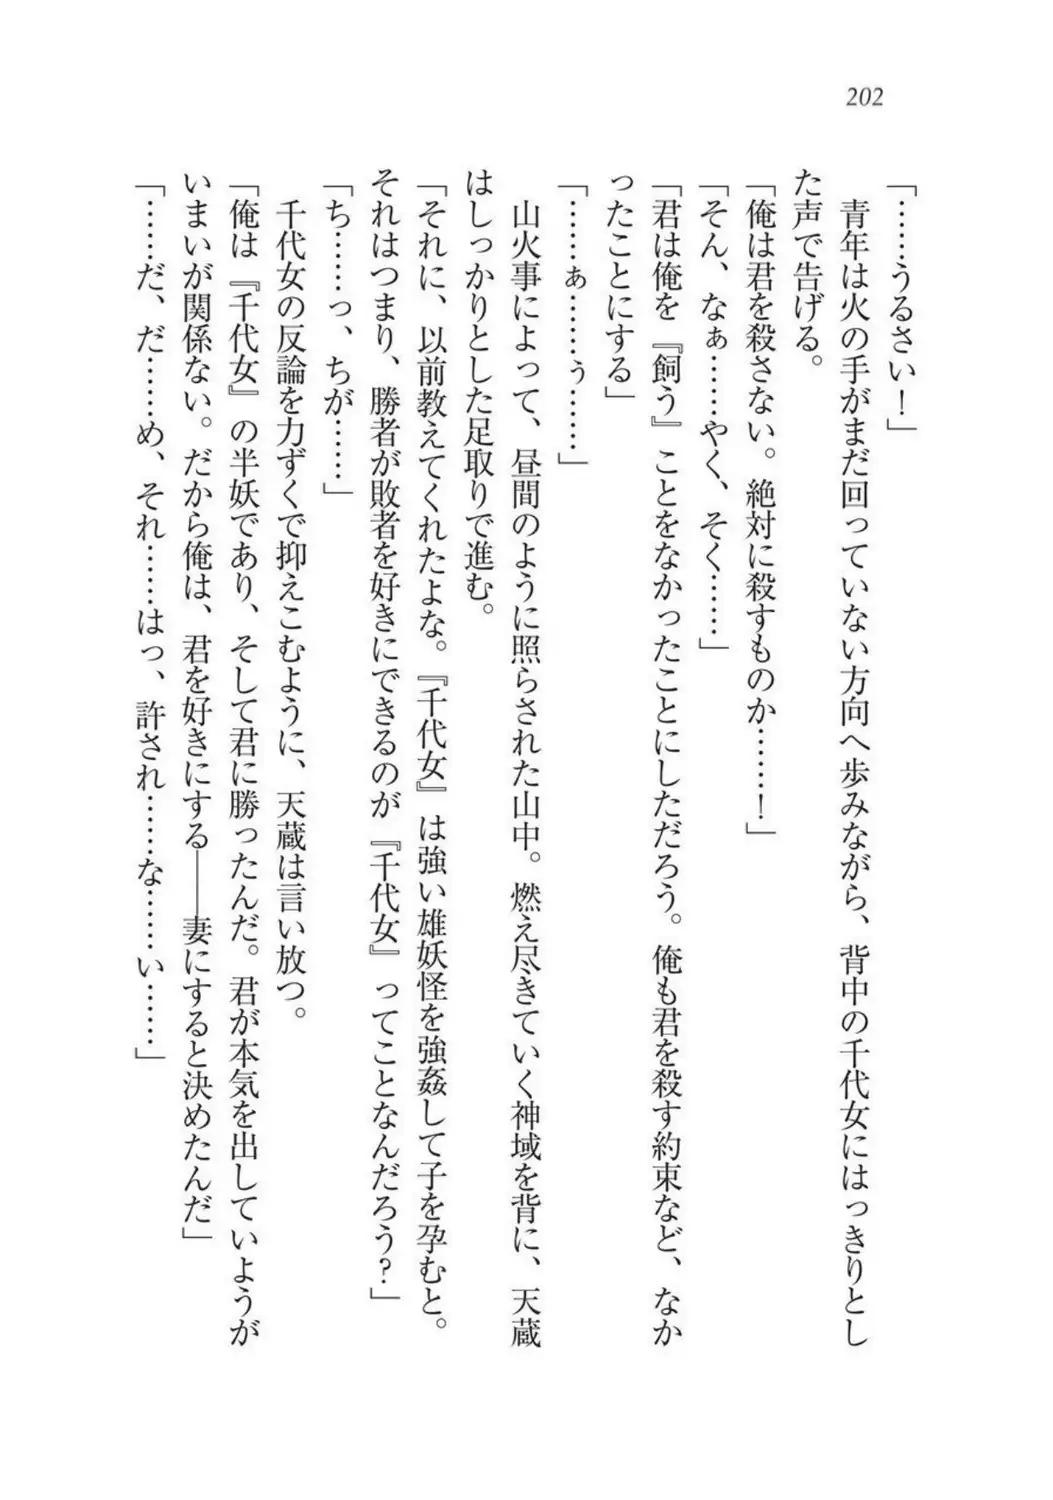 202
「……うるさい！」
　青年は火の手がまだ回っていない方向へ歩みながら、背中の千代女にはっきりとし
た声で告げる。
「俺は君を殺さない。絶対に殺すものか……！」
「そん、なぁ……やく、そく……」
「君は俺を『飼う』ことをなかったことにしただろう。俺も君を殺す約束など、なか
ったことにする」
「……ぁ……ぅ……」
　山火事によって、昼間のように照らされた山中。燃え尽きていく神域を背に、天蔵
はしっかりとした足取りで進む。
「それに、以前教えてくれたよな。『千代女』は強い雄妖怪を強姦して子を孕むと。
それはつまり、勝者が敗者を好きにできるのが『千代女』ってことなんだろう？」
「ち……っ、ちが……」
　千代女の反論を力ずくで抑えこむように、天蔵は言い放つ。
「俺は『千代女』の半妖であり、そして君に勝ったんだ。君が本気を出していようが
いまいが関係ない。だから俺は、君を好きにする――妻にすると決めたんだ」
「……だ、だ……め、それ……はっ、許され……な……い……」